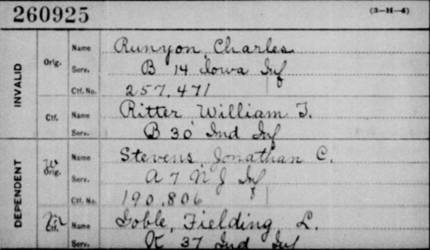 260925
(3—H—4)
INVALID
Orig.
Name
Runyon, Charles
Serv.
B 14 Iowa Inf
Ctf. No.
257,471
Ctf.
Name
Ritter William T.
Serv.
B 30 Ind Inf
DEPENDENT
W
Orig.
Name
Stevens, Jonathan C.
Serv.
A 7 N J Inf
Ctf. No.
190,806
Ctf.
Name
Goble, Fielding L.
Serv.
K 37 Ind Inf